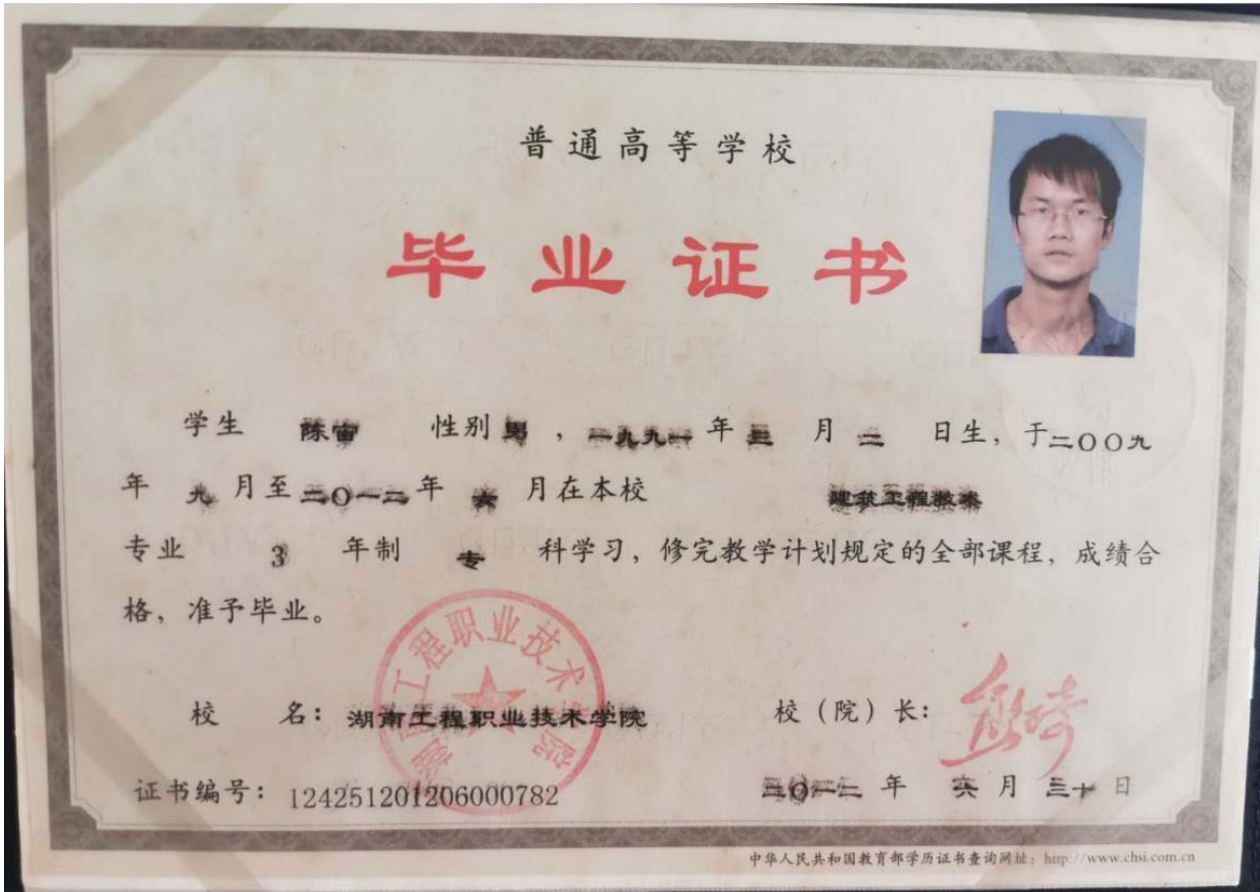 普通高等学校
毕业证书
学生 陈宙 性别 男，一九九一年三月二日生，于二〇〇九
年九月至二〇一二年六月在本校 建筑工程技术
专业 3 年制 专 科学习，修完教学计划规定的全部课程，成绩合
格，准予毕业。
湖南工程职业技术学院
校 名：湖南工程职业技术学院 校（院）长：
证书编号：124251201206000782 二〇一二年 六月 三十日
中华人民共和国教育部学历证书查询网址：http://www.chsi.com.cn